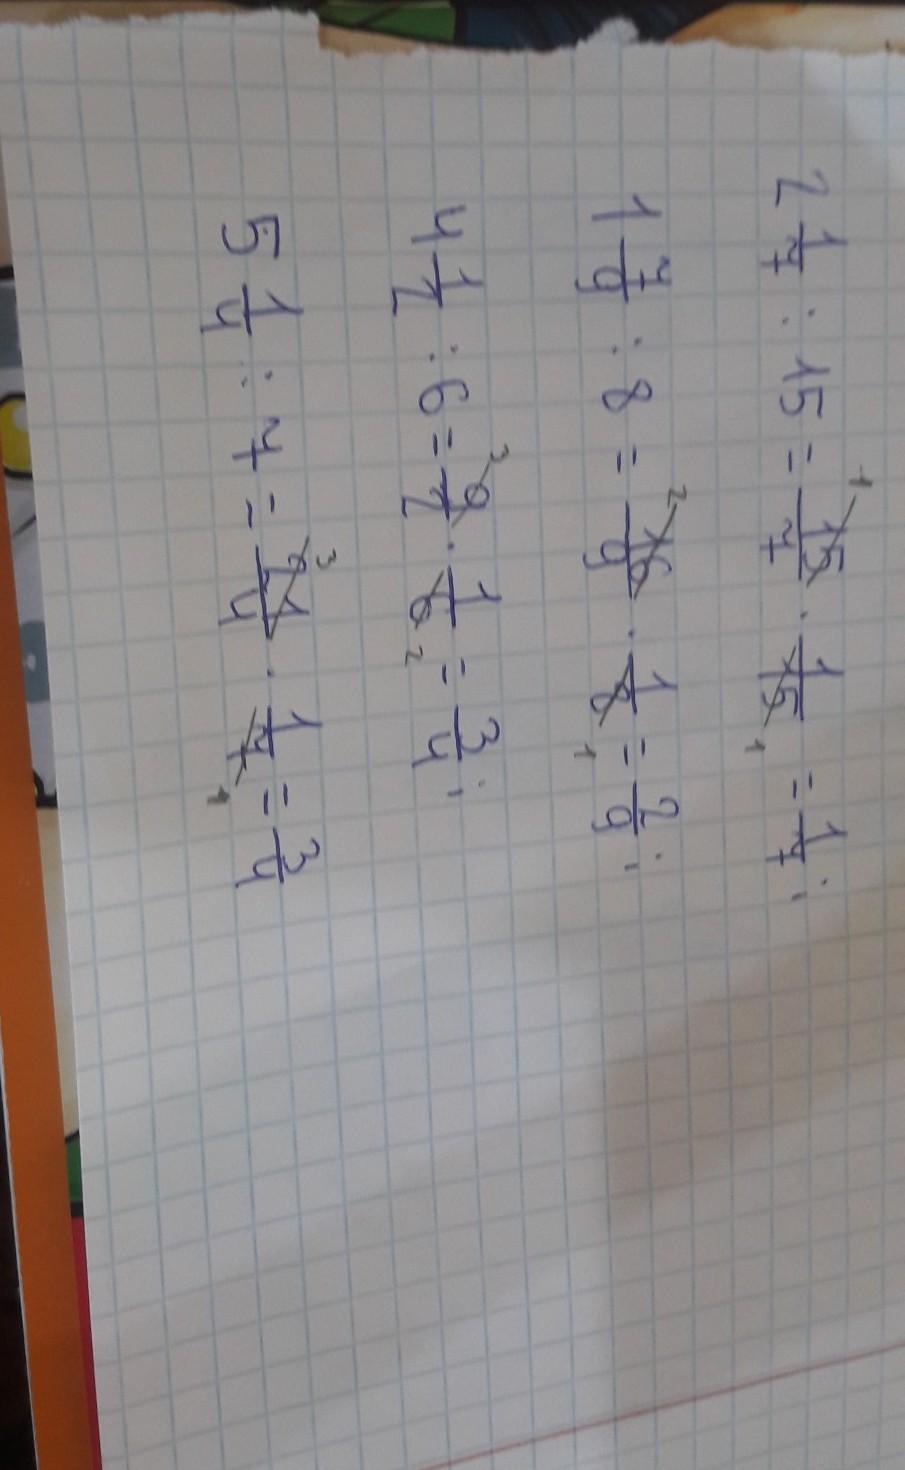 2 1/7 : 15 = 15/7 · 1/15 = 1/7;
1 7/9 : 8 = 16/9 · 1/8 = 2/9;
4 1/2 : 6 = 9/2 · 1/6 = 3/4;
5 1/4 : 7 = 21/4 · 1/7 = 3/4